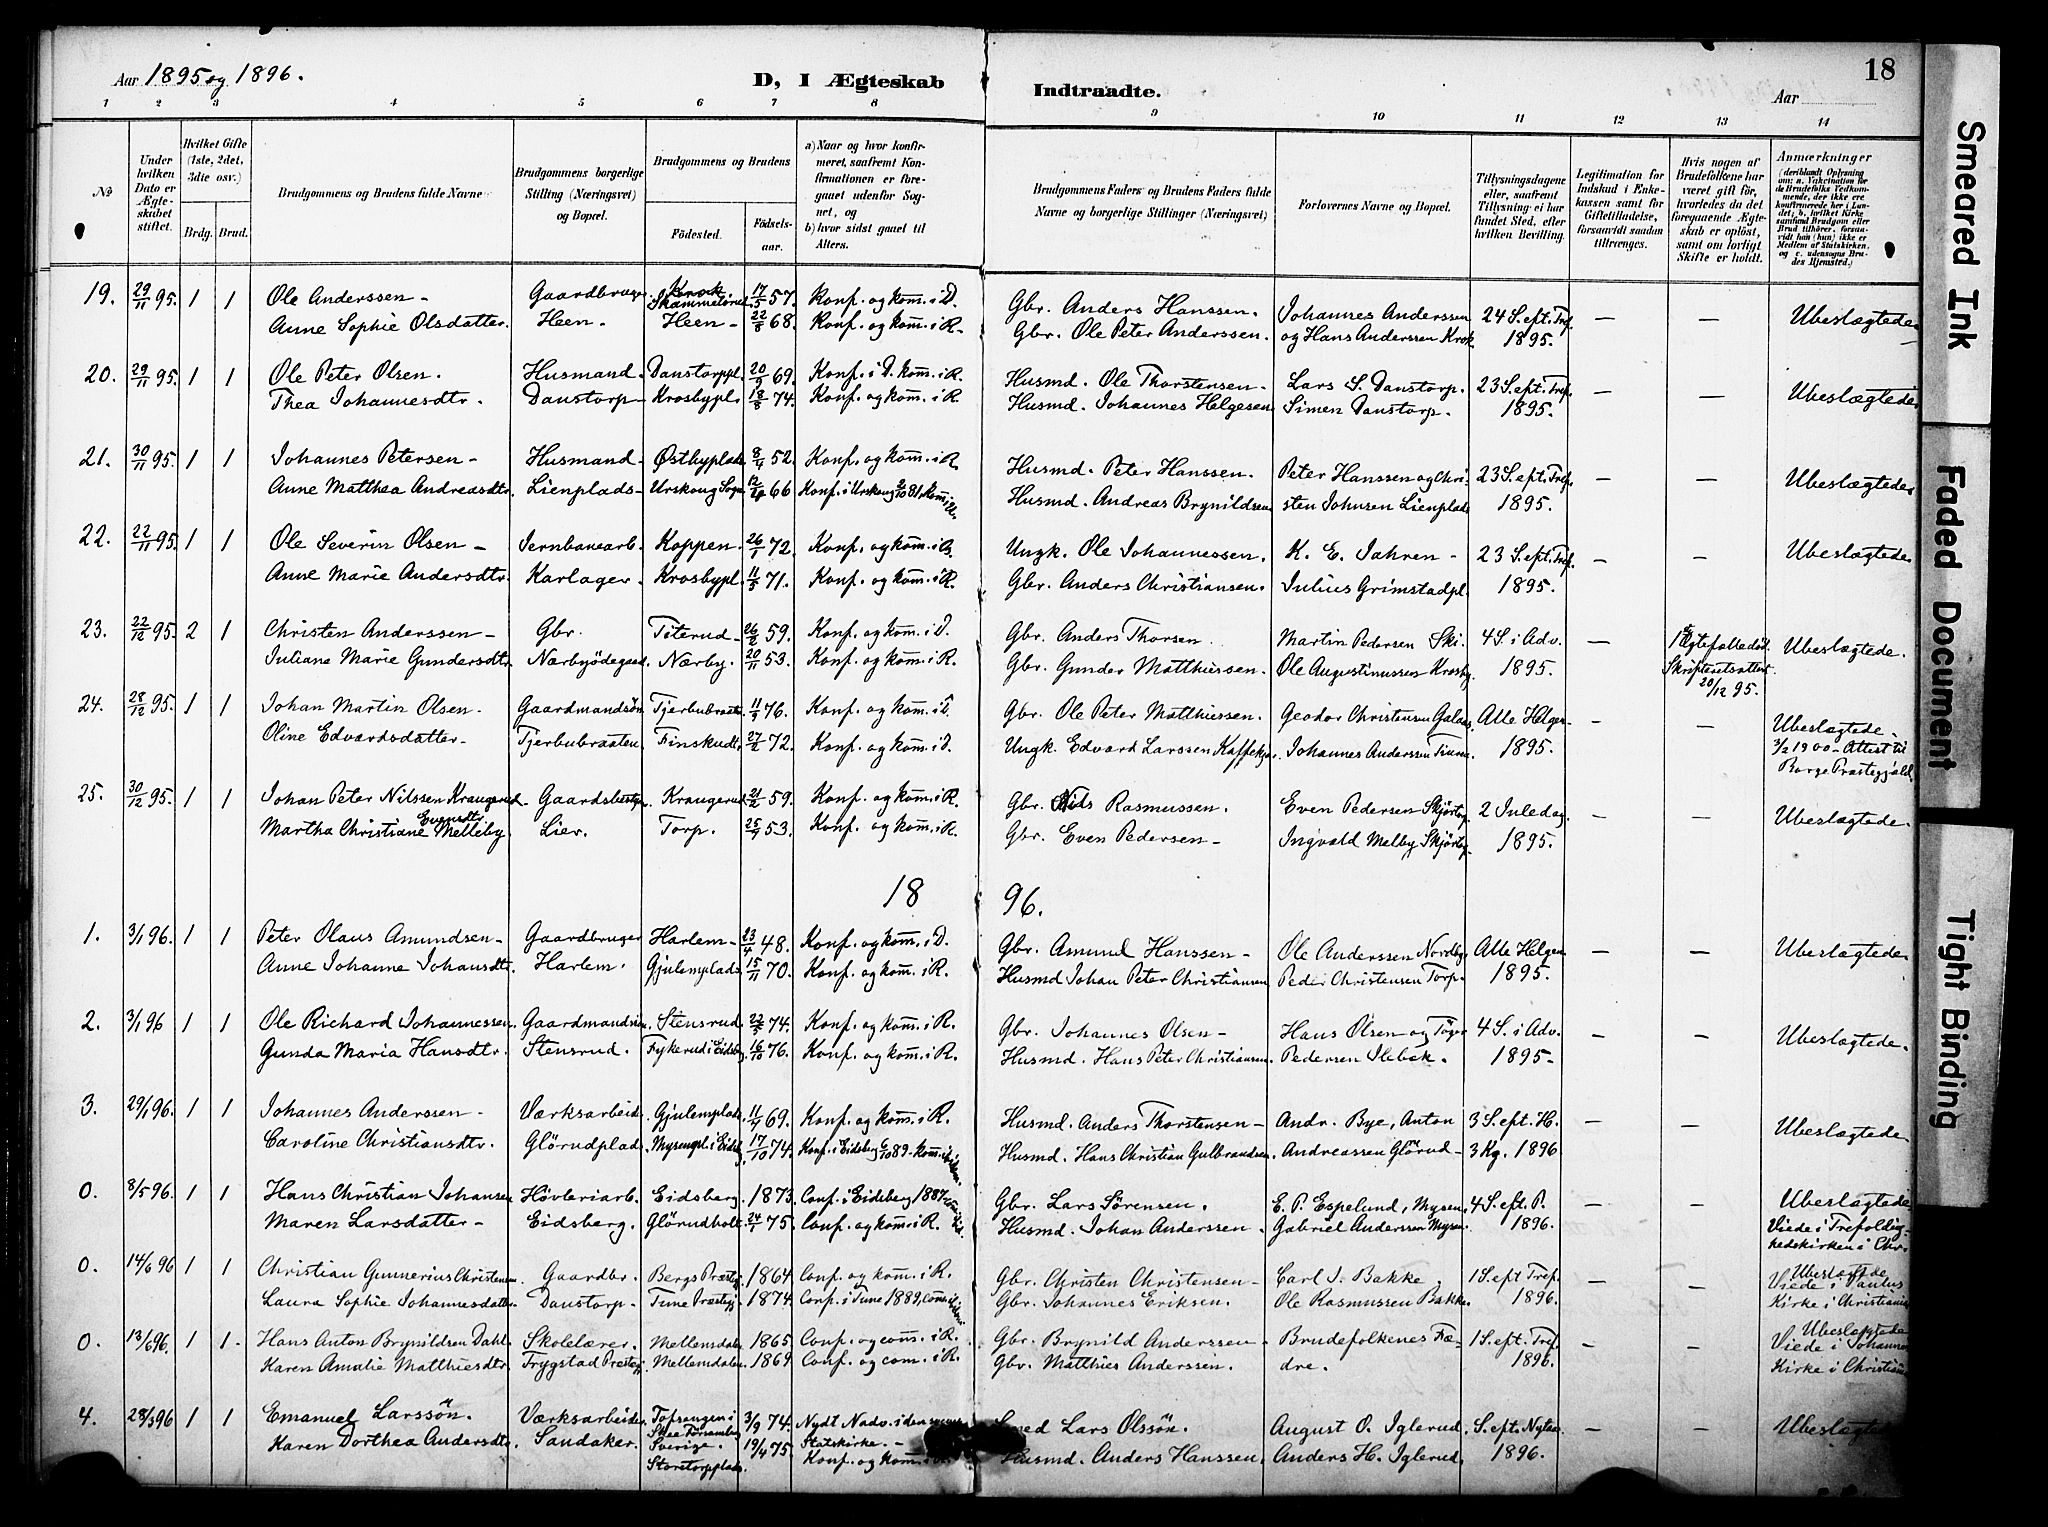 Aar 1895 og 1896.
D, I Ægteskab
Indtraadte.
Aar
18
1 2 3 4 5 6 7 8 9 10 11 12 13 14
No
Under hvilken Dato er Ægteskabet stiftet.
Hvilket Gifte (1ste, 2det, 3die osv.)
Brdg. Brud.
Brudgommens og Brudens fulde Navne
Brudgommens borgerlige Stilling (Næringsvei) og Bopæl.
Brudgommens og Brudens
Fødested. Fødselsaar.
a) Naar og hvor konfirmeret, saafremt Konfirmationen er foregaaet udenfor Sognet, og
b) hvor sidst gaaet til Alters.
Brudgommens Faders og Brudens Faders fulde Navne og borgerlige Stillinger (Næringsvei)
Forlovernes Navne og Bopæl.
Tillysningsdagene eller, saafremt Tillysning ei har fundet Sted, efter hvilken Bevilling.
Legitimation for Indskud i Enkekassen samt for Giftetilladelse, forsaavidt saadan tiltrænges.
Hvis nogen af Brudefolkene har været gift før, hvorledes da det foregaaende Ægteskab er opløst, samt om lovligt Skifte er holdt.
Anmærkninger (deriblandt Oplysning om: a. Vakcination for de Brudefolks Vedkommende, der ikke ere konfirmerede her i Landet; b. hvilket Kirkesamfund Brudgom eller Brud tilhører, forsaavidt han (hun) ikke er Medlem af Statskirken, og c. udensogns Brudes Hjemsted.)
19. 29/11 95. 1 1 Ole Anderssen - Gaardbruger Krok Skammelsrud 17/5 57. Konf. og kom. i D. Gbr. Anders Hanssen. Johannes Anderssen 24 S. ept. Tref. — — Ubeslægtede
Anne Sophie Olsdatter. Heen. Heen - 22/8 68. Konf. og kom. i R. Gbr. Ole Peter Anderssen. og Hans Anderssen Krok 1895.
20. 29/11 95. 1 1 Ole Peter Olsen. Husmand. Danstorppl. 20/9 69. Konf. i D. kom. i R. Husmd. Ole Thorstensen - Lars S. Danstorp. 23 S. ept. Tref. — — Ubeslægtede
Thea Johannesdtr. Danstorp - Krosbypl. 18/8 74. Konf. og kom. i R. Husmd. Johannes Helgesen Simen Danstorp. 1895.
21. 30/11 95. 1 1 Johannes Petersen - Husmand. Østbyplads. 8/4 52. Konf. og kom. i R. Husmd. Peter Hanssen. Peter Hanssen og Chri- 23 S. ept. Tref. — — Ubeslægtede
Anne Matthea Andreasdtr. Lienplads - Urskoug Sogn 66 Konf. i Urskoug 2/10 81, kom. i R. Husmd. Andreas Brynildsen sten Johnsen Lienplads 1895.
22. 22/11 95. 1 1 Ole Severin Olsen - Jernbanearb. Koppen. 26/1 72. Konf. og kom. i R. Ungk. Ole Johannessen. K. E. Jahren - 23 S. ept. Tref. — — Ubeslægtede
Anne Marie Andersdtr. Karlager. Krosbypl. 11/5 71. Konf. og kom. i R. Gbr. Anders Christiansen. Julius Grimstadpl. 1895.
23. 22/12 95. 2 1 Christen Anderssen - Gbr. Titerud - 26/2 59. Konf. og kom. i D. Gbr. Anders Thorsen. Martin Pedersen Ski. 4 S. i Adv. — 1 Ægtefælle død. Ubeslægtede.
Juliane Marie Gundersdtr. Nærbyødegaard. Nærby. 20/11 53. Konf. og kom. i R. Gbr. Gunder Matthiessen. Ole Augustinussen Krosby. 1895. Skifteretsattest 20/12 95.
24. 28/12 95. 1 1 Johan Martin Olsen. Gaardmandsøn Tjerbubraaten 11/9 76. Konf. og kom. i D. Gbr. Ole Peter Matthiessen. Geodor Christensen Galaas. Alle Helgen - — — Ubeslægtede.
Oline Edvardsdatter - Tjerbubraaten. Finskudt. 27/2 72. Konf. og kom. i D. Ungk. Edvard Larssen Johannes Anderssen 1895. 3/2 1900 - Attest til Borge Præstegjæld.
25. 30/12 95. 1 1 Johan Peter Nilssen Kraugerud. Gaardsbestyr. Kraugerud 21/2 59. Konf. og kom. i R. Gbr. Nils Rasmussen. Even Pedersen Skjørtop. 2 Juledag. — — Ubeslægtede.
Martha Christiane Evensdtr. Melleby. Lier. Torp. 25/9 53. Konf. og kom. i R. Gbr. Even Pedersen - Ingvald Melby 1895.
18 96.
1. 3/1 96. 1 1 Peter Olaus Amundsen - Gaardbruger Harlem - 23/4 48. Konf. og kom. i D. Gbr. Amund Hanssen - Ole Anderssen Nordby. Alle Helgen — — Ubeslægtede
Anne Johanne Johansdtr. Harlem. Gjulemplads. 15/11 70. Konf. og kom. i R. Husmd Johan Peter Christiansen Peder Christensen Torp. 1895.
2. 3/1 96 1 1 Ole Richard Johannessen. Gaardmandsøn. Stensrud. 22/5 74. Konf. og kom. i R. Gbr. Johannes Olsen - Hans Olsen og 4 S. i Adv. — — Ubeslægtede.
Gunda Maria Hansdtr. Stensrud. Fykerud i Eidsbg. 16/10 76. Konf. og kom. i R. Husmd. Hans Peter Christiansen. Pedersen Slebak. 1895 -
3. 29/1 96. 1 1 Johannes Anderssen - Værksarbeid. Gjulemplads. 11/9 69. Konf. og kom. i R. Husmd. Anders Thorstensen - Andr. Bye, Anton 3 S. ept. H. — — Ubeslægtede
Caroline Christiansdtr. Glörudplads. Myrengpl. i Eidsbg. 17/10 74. Konf. i Eidsberg 6/10 89 - kom. Husmd. Hans Christian Gulbrandsen. Andreassen Glörud - 3 Kg. 1896
0. 8/5 96. 1 1 Hans Christian Johansen Høvleriarb. Eidsberg. 1873. Conf. i Eidsberg 1887 Gbr. Lars Sørensen. E. P. Espelund, Mysen. 4 S. ept. P. — — Ubeslægtede
Maren Larsdatter - Eidsberg. Glörudholt. 24/1 75. Conf. og kom. i R. Husmd. Johan Anderssen - Gabriel Anderssen Mysen. 1896. Viede i Trefoldighedskirken i Chr.
0. 14/6 96 1 1 Christian Gunnerius Christensen Gaardbr. Bergs Præstegj. 1864 Conf. og kom. i R. Gbr. Christen Christensen - Carl J. Bakke. 1 S. ept Tref. — — Ubeslægtede
Laura Sophie Johannesdatter. Danstorp - Tune Præstegj. 1874. Conf. i Tune 1889, Gbr. Johannes Eriksen. Ole Rasmussen Bakke 1896. Viede i Paulus Kirke i Christiania
0. 13/6 96. 1 1. Hans Anton Brynildsen Dahl. Skolelærer. Mellemdalen 1865. Conf. og com. i R. Gbr. Brynild Anderssen - Brudefolkenes Fæ- 1 S. ept. Tref. — — Ubeslægtede
Karen Amalie Matthiesdtr. Trygstad Præstegj. Mellemdalen. 1869. Conf. og com. i R. Gbr. Matthies Anderssen. dre. 1896. Viede i Johannes Kirke i Christiania
4. 28/3 96 1 1 Emanuel Larssön. Værksarbeider. Tofsængen i 3/9 74. Nydt Nadv. i den Smed Lars Olssön. August O. Iglerud. S. ept. Nytaar — — Ubeslægtede
Karen Dorthea Andersdtr. Sandaker. Sverige. 19/4 75. Statskirke. - Husmd. Anders Hanssen. Anders H. Iglerud. 1896.
Storetorpplads. Konf. og kom. i R.
Smeared Ink
Faded Document
Tight Binding